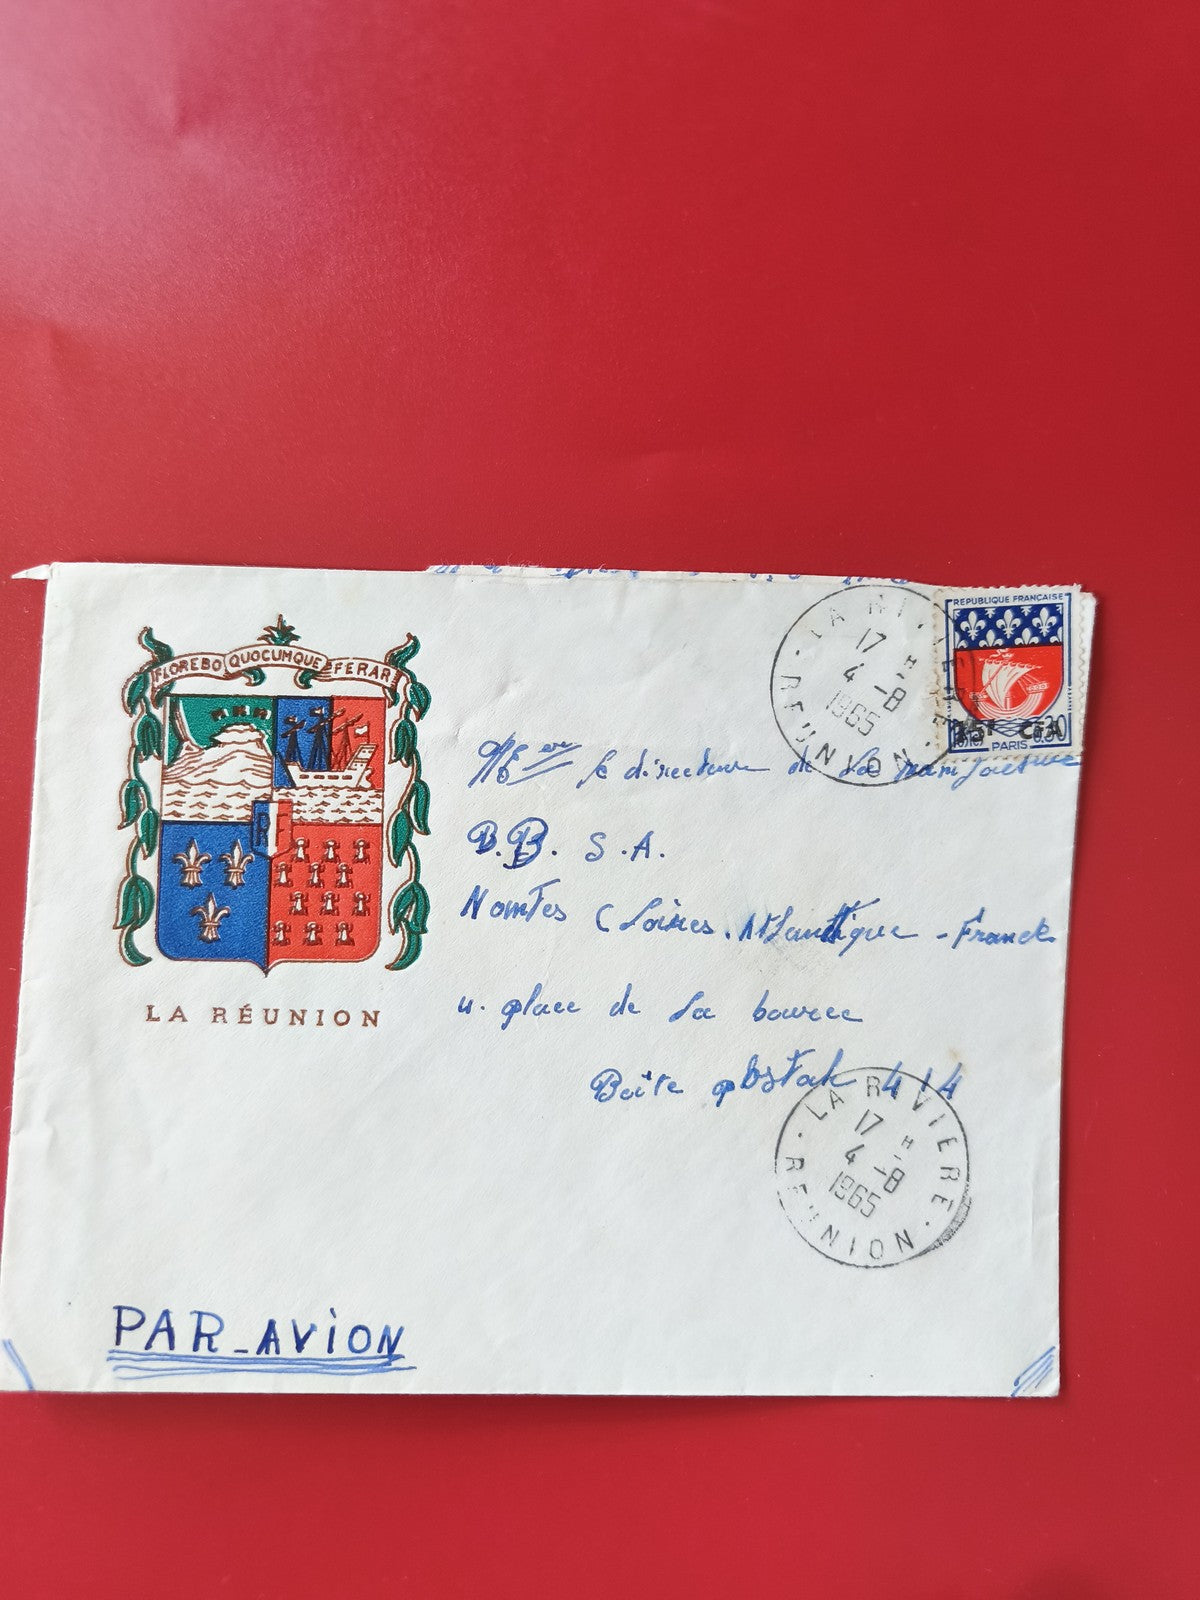 FLOREBO QUOCUMQUE FERAR
RF
LA RÉUNION
REPUBLIQUE FRANÇAISE
0,30
CFA
POSTES PARIS
LA RIVIERE
17 H
4 - 8
1965
REUNION
le directeur de la manufacture
B.B. S.A.
Nantes (Loires. Atlantique - France
4. place de la bource
Boîte postale 414
LA RIVIERE
17 H
4 - 8
1965
REUNION
PAR-AVION